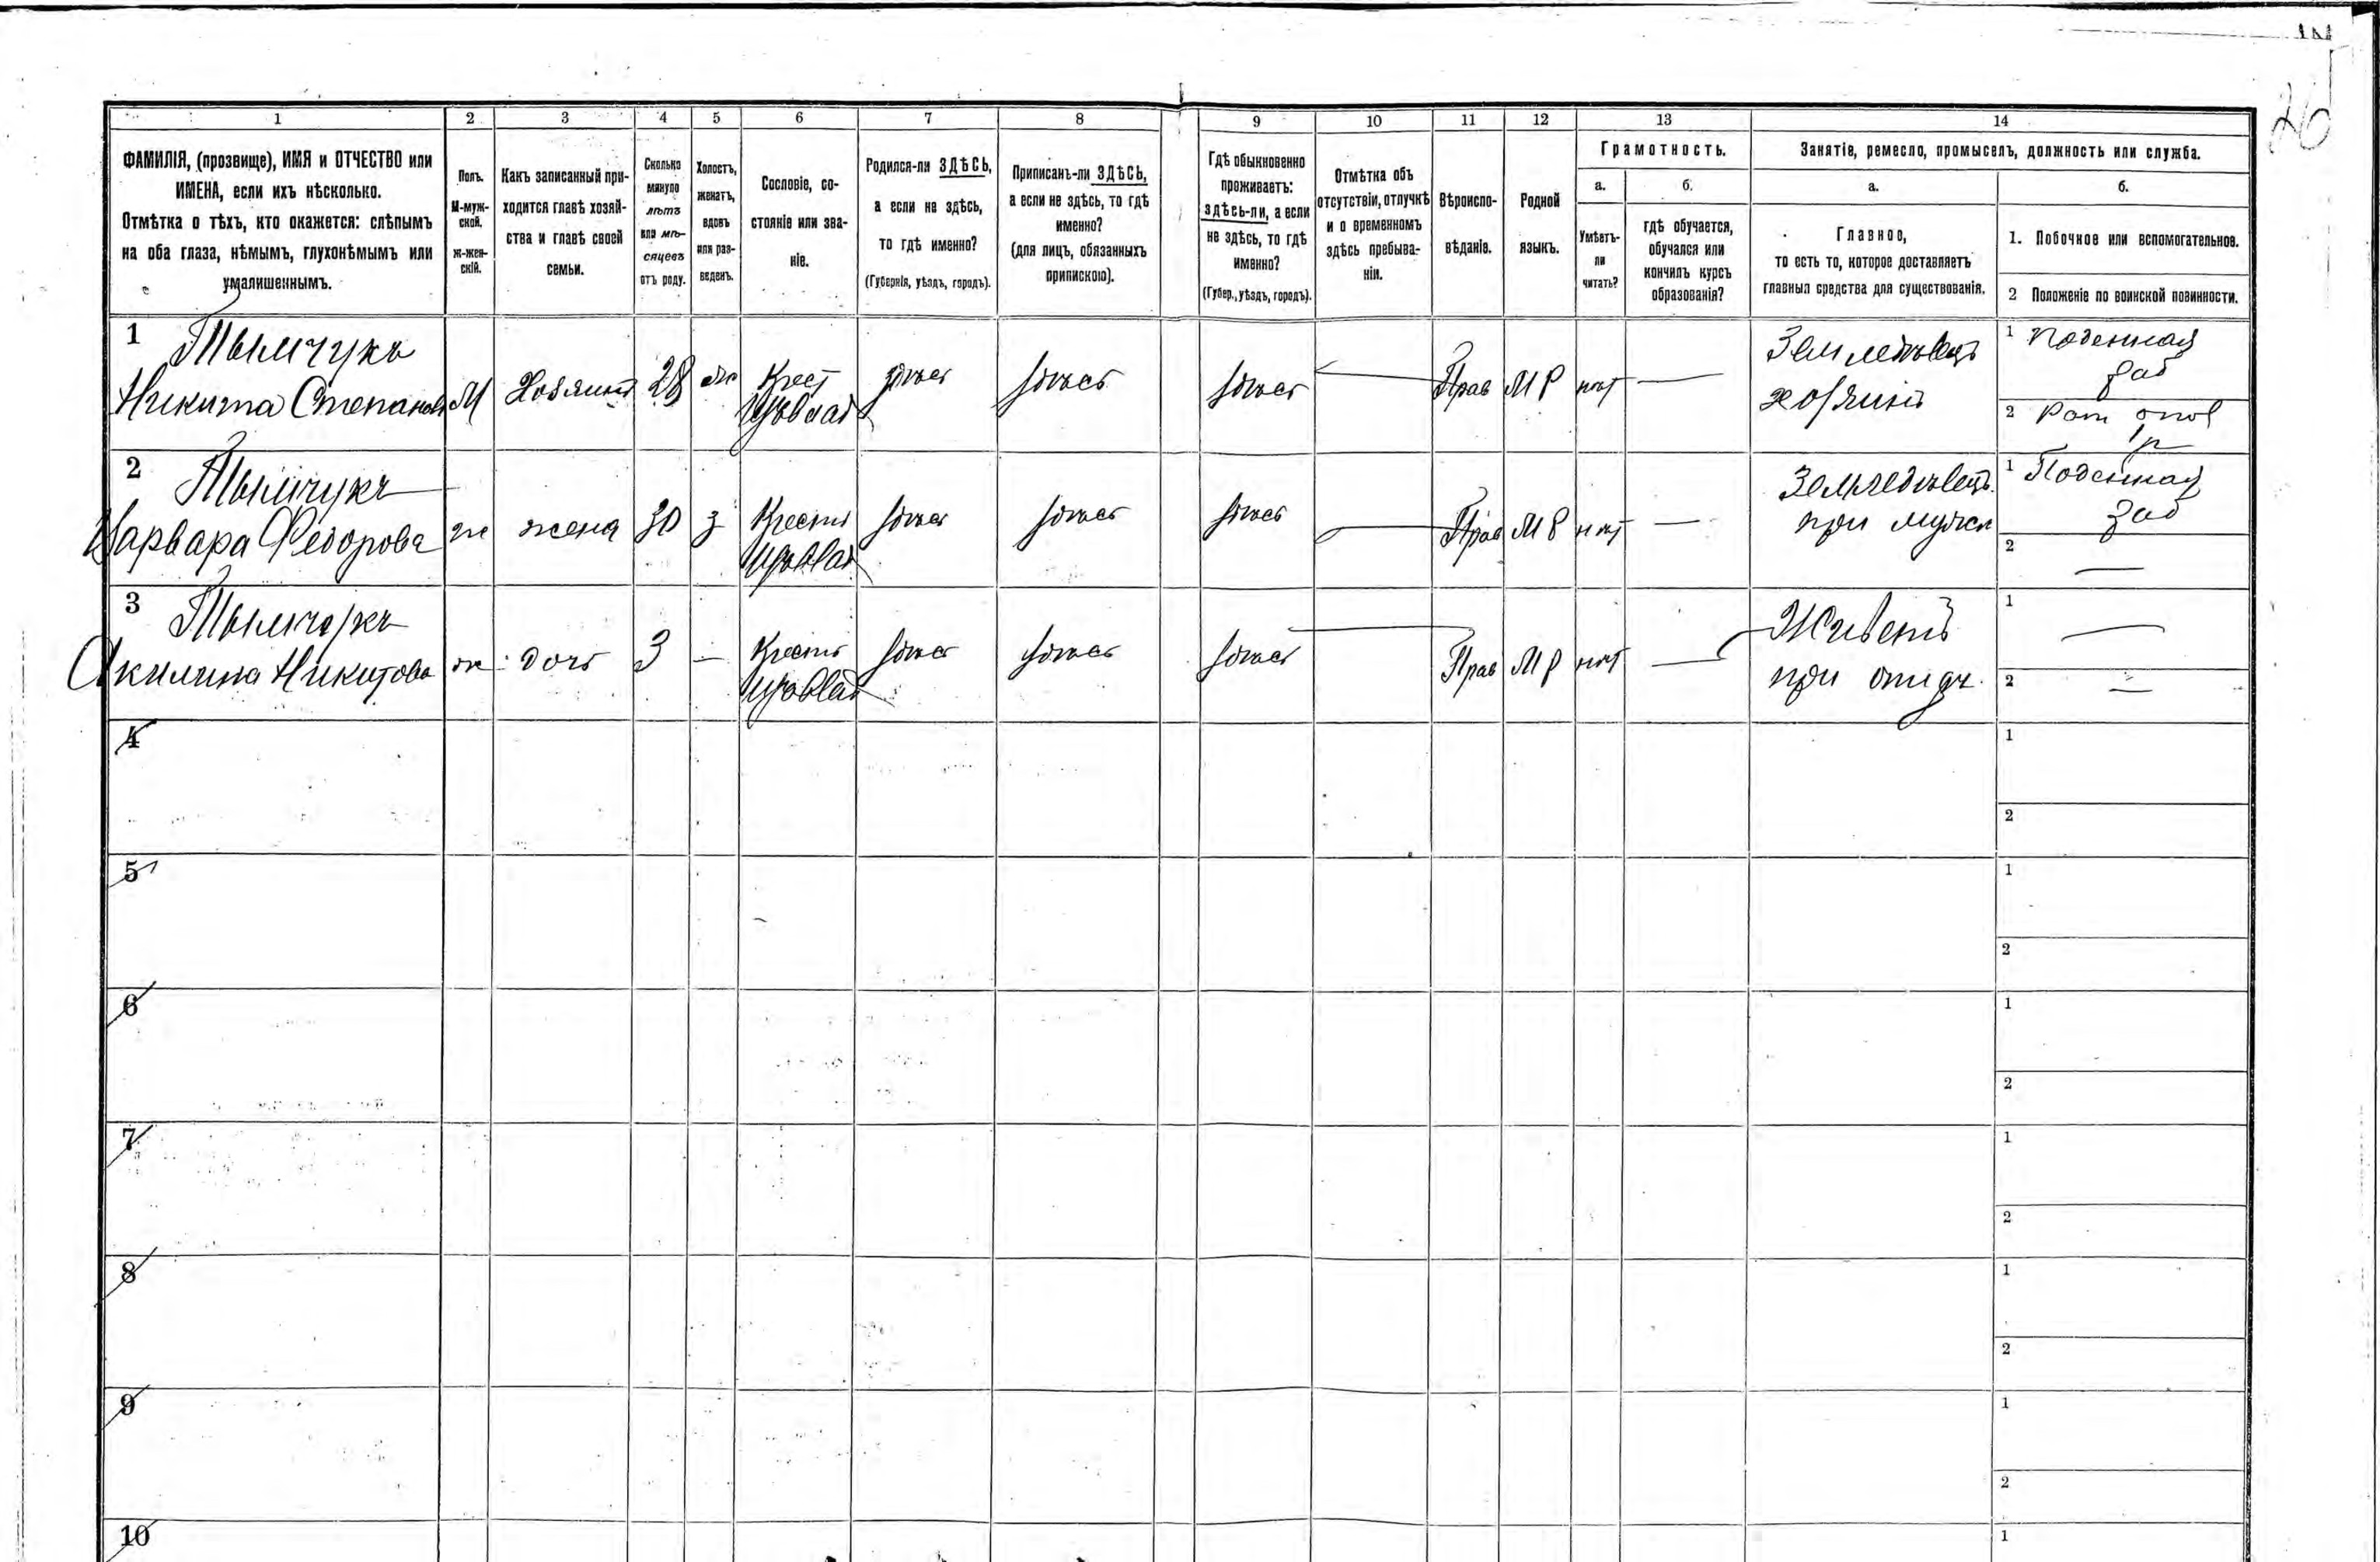 1 2 3 4 5 6 7 8 9 10 11 12 13 14
ФАМИЛІЯ, (прозвище), ИМЯ и ОТЧЕСТВО или
ИМЕНА, если ихъ нѣсколько.
Отмѣтка о тѣхъ, кто окажется: слѣпымъ
на оба глаза, нѣмымъ, глухонѣмымъ или
умалишеннымъ.
Полъ.
М-муж-
ской.
ж-жен-
скій.
Какъ записанный при-
ходится главѣ хозяй-
ства и главѣ своей
семьи.
Сколько
минуло
лѣтъ
или мѣ-
сяцевъ
отъ роду.
Холостъ,
женатъ,
вдовъ
или раз-
веденъ.
Сословіе, со-
стояніе или зва-
ніе.
Родился-ли ЗДѢСЬ,
а если не здѣсь,
то гдѣ именно?
(Губернія, уѣздъ, городъ).
Приписанъ-ли ЗДѢСЬ,
а если не здѣсь, то гдѣ
именно?
(для лицъ, обязанныхъ
припискою).
Гдѣ обыкновенно
проживаетъ:
здѣсь-ли, а если
не здѣсь, то гдѣ
именно?
(Губер., уѣздъ, городъ).
Отмѣтка объ
отсутствіи, отлучкѣ
и о временномъ
здѣсь пребыва-
ніи.
Вѣроиспо-
вѣданіе.
Родной
языкъ.
Грамотность.
а.
Умѣетъ-
ли
читать?
б.
гдѣ обучается,
обучался или
кончилъ курсъ
образованія?
Занятіе, ремесло, промыселъ, должность или служба.
а.
Главное,
то есть то, которое доставляетъ
главныя средства для существованія.
б.
1. Побочное или вспомогательное.
2 Положеніе по воинской повинности.
1 Тымчукъ
Никита Степановъ
М
Хозяинъ
28
ж
Крест
здѣсь
здѣсь
здѣсь
Прав
МР
нѣт
—
Земледѣлецъ
хозяинъ
1 Поденная
раб
2 Рат опол
1 р
2 Тымчукъ
Варвара Федорова
ж
жена
30
з
Крестъ
здѣсь
здѣсь
здѣсь
Прав
МР
нѣт
—
Земледѣлецъ
при мужѣ
1 Поденная
раб
2 —
3 Тымчукъ
Акилина Никитова
ж
дочь
3
—
Крестъ
здѣсь
здѣсь
здѣсь
Прав
МР
нѣт
—
Живетъ
при отцѣ
1 —
2 —
4
1
2
5
1
2
6
1
2
7
1
2
8
1
2
9
1
2
10
1